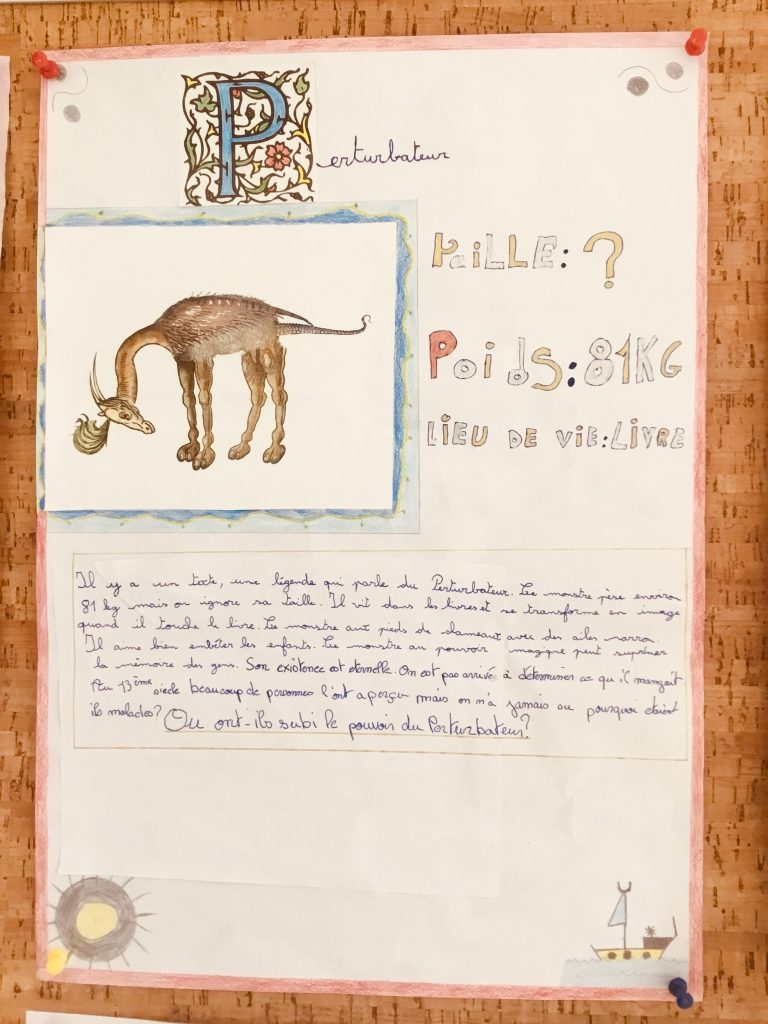 Perturbateur
TaiLLE: ?
PoidS: 81KG
LIEU DE ViE: LIVRE
Il y a un texte, une légende qui parle du Perturbateur. Ce monstre père environ
81 kg mais on ignore sa taille. Il vit dans les livres et se transforme en image
quand il touche le livre. Ce monstre aux pieds de chameaux avec des ailes marron.
Il aime bien embêter les enfants. Ce monstre au pouvoir magique peut suprimer
la mémoire des gens. Son existence est éternelle. On est pas arrivé à déterminer ce qu'il mangait
Au 13ème siècle beaucoup de personnes l'ont aperçu mais on n'a jamais su pourquoi étaient
ils malades? Ou ont-ils subi le pouvoir du Perturbateur?